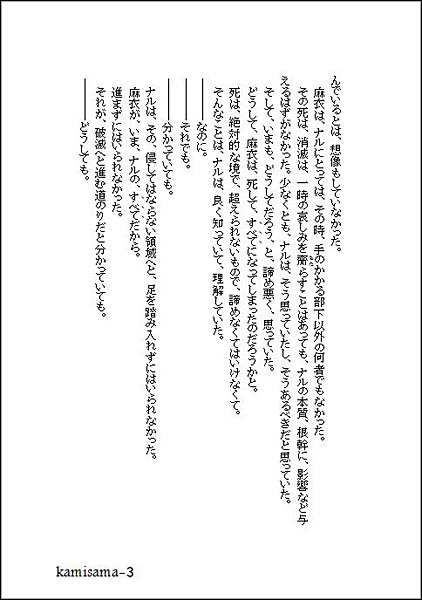 んでいるとは、想像もしていなかった。
麻衣は、ナルにとっては、その時、手のかかる部下以外の何者でもなかった。
その死は、消滅は、一時の哀しみを齎らすことはあっても、ナルの本質、根幹に、影響など与
えるはずがなかった。少なくとも、ナルは、そう思っていたし、そうあるべきだと思っていた。
そして、いまも、どうしてだろう、と、諦め悪く、思っていた。
どうして、麻衣は、死して、すべてになってしまったのだろうかと。
死は、絶対的な境で、超えられないもので、諦めなくてはいけなくて。
そんなことは、ナルは、良く知っていて、理解していた。
――――なのに。
――――それでも。
――――分かっていても。
ナルは、その、侵してはならない領域へと、足を踏み入れずにはいられなかった。
麻衣が、いま、ナルの、すべてだから。
進まずにはいられなかった。
それが、破滅へと進む道のりだと分かっていても。
――――どうしても。
kamisama-3